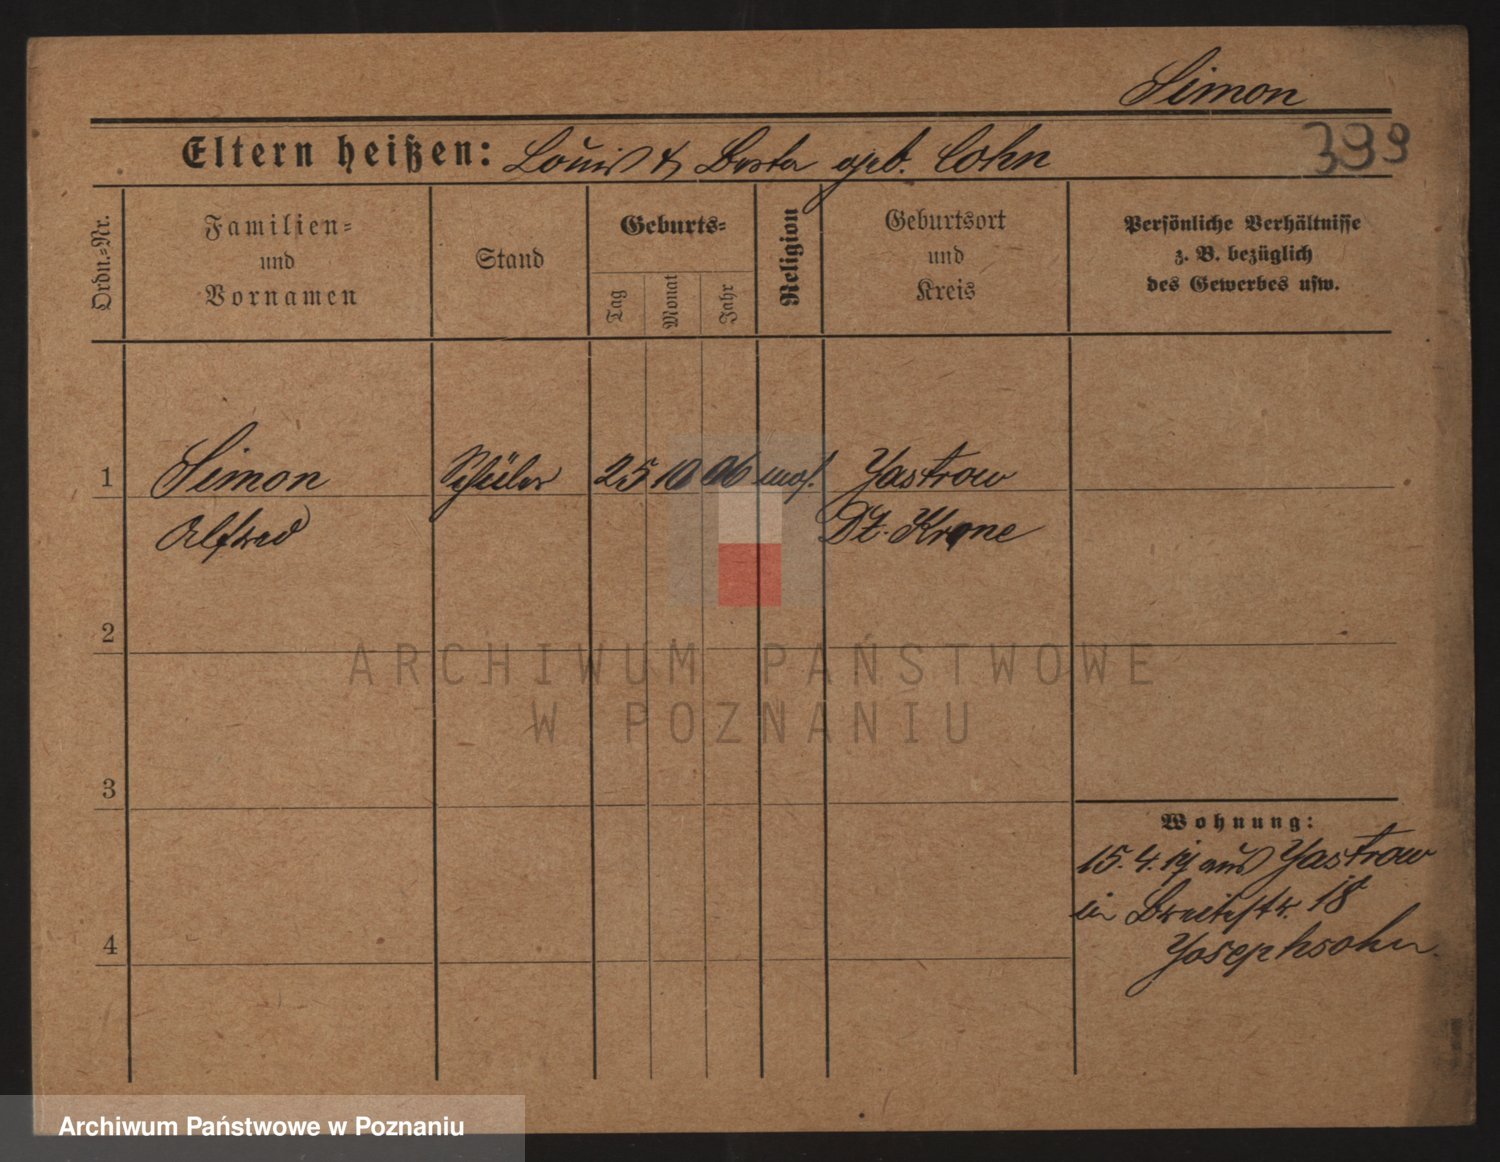 Simon
Eltern heißen: Louis & Berta geb. Cohn
399
Ordn.-Nr.
Familien-
und
Vornamen
Stand
Geburts-
Tag
Monat
Jahr
Religion
Geburtsort
und
Kreis
Persönliche Verhältnisse
z. B. bezüglich
des Gewerbes usw.
1 Simon Schüler 25 10 06 mos. Jastrow
Alfred Dt. Krone
2
3
4
Wohnung:
15. 4. 19 aus Jastrow
in Breitestr. 18
Josephsohn.
ARCHIWUM PAŃSTWOWE
W POZNANIU
Archiwum Państwowe w Poznaniu